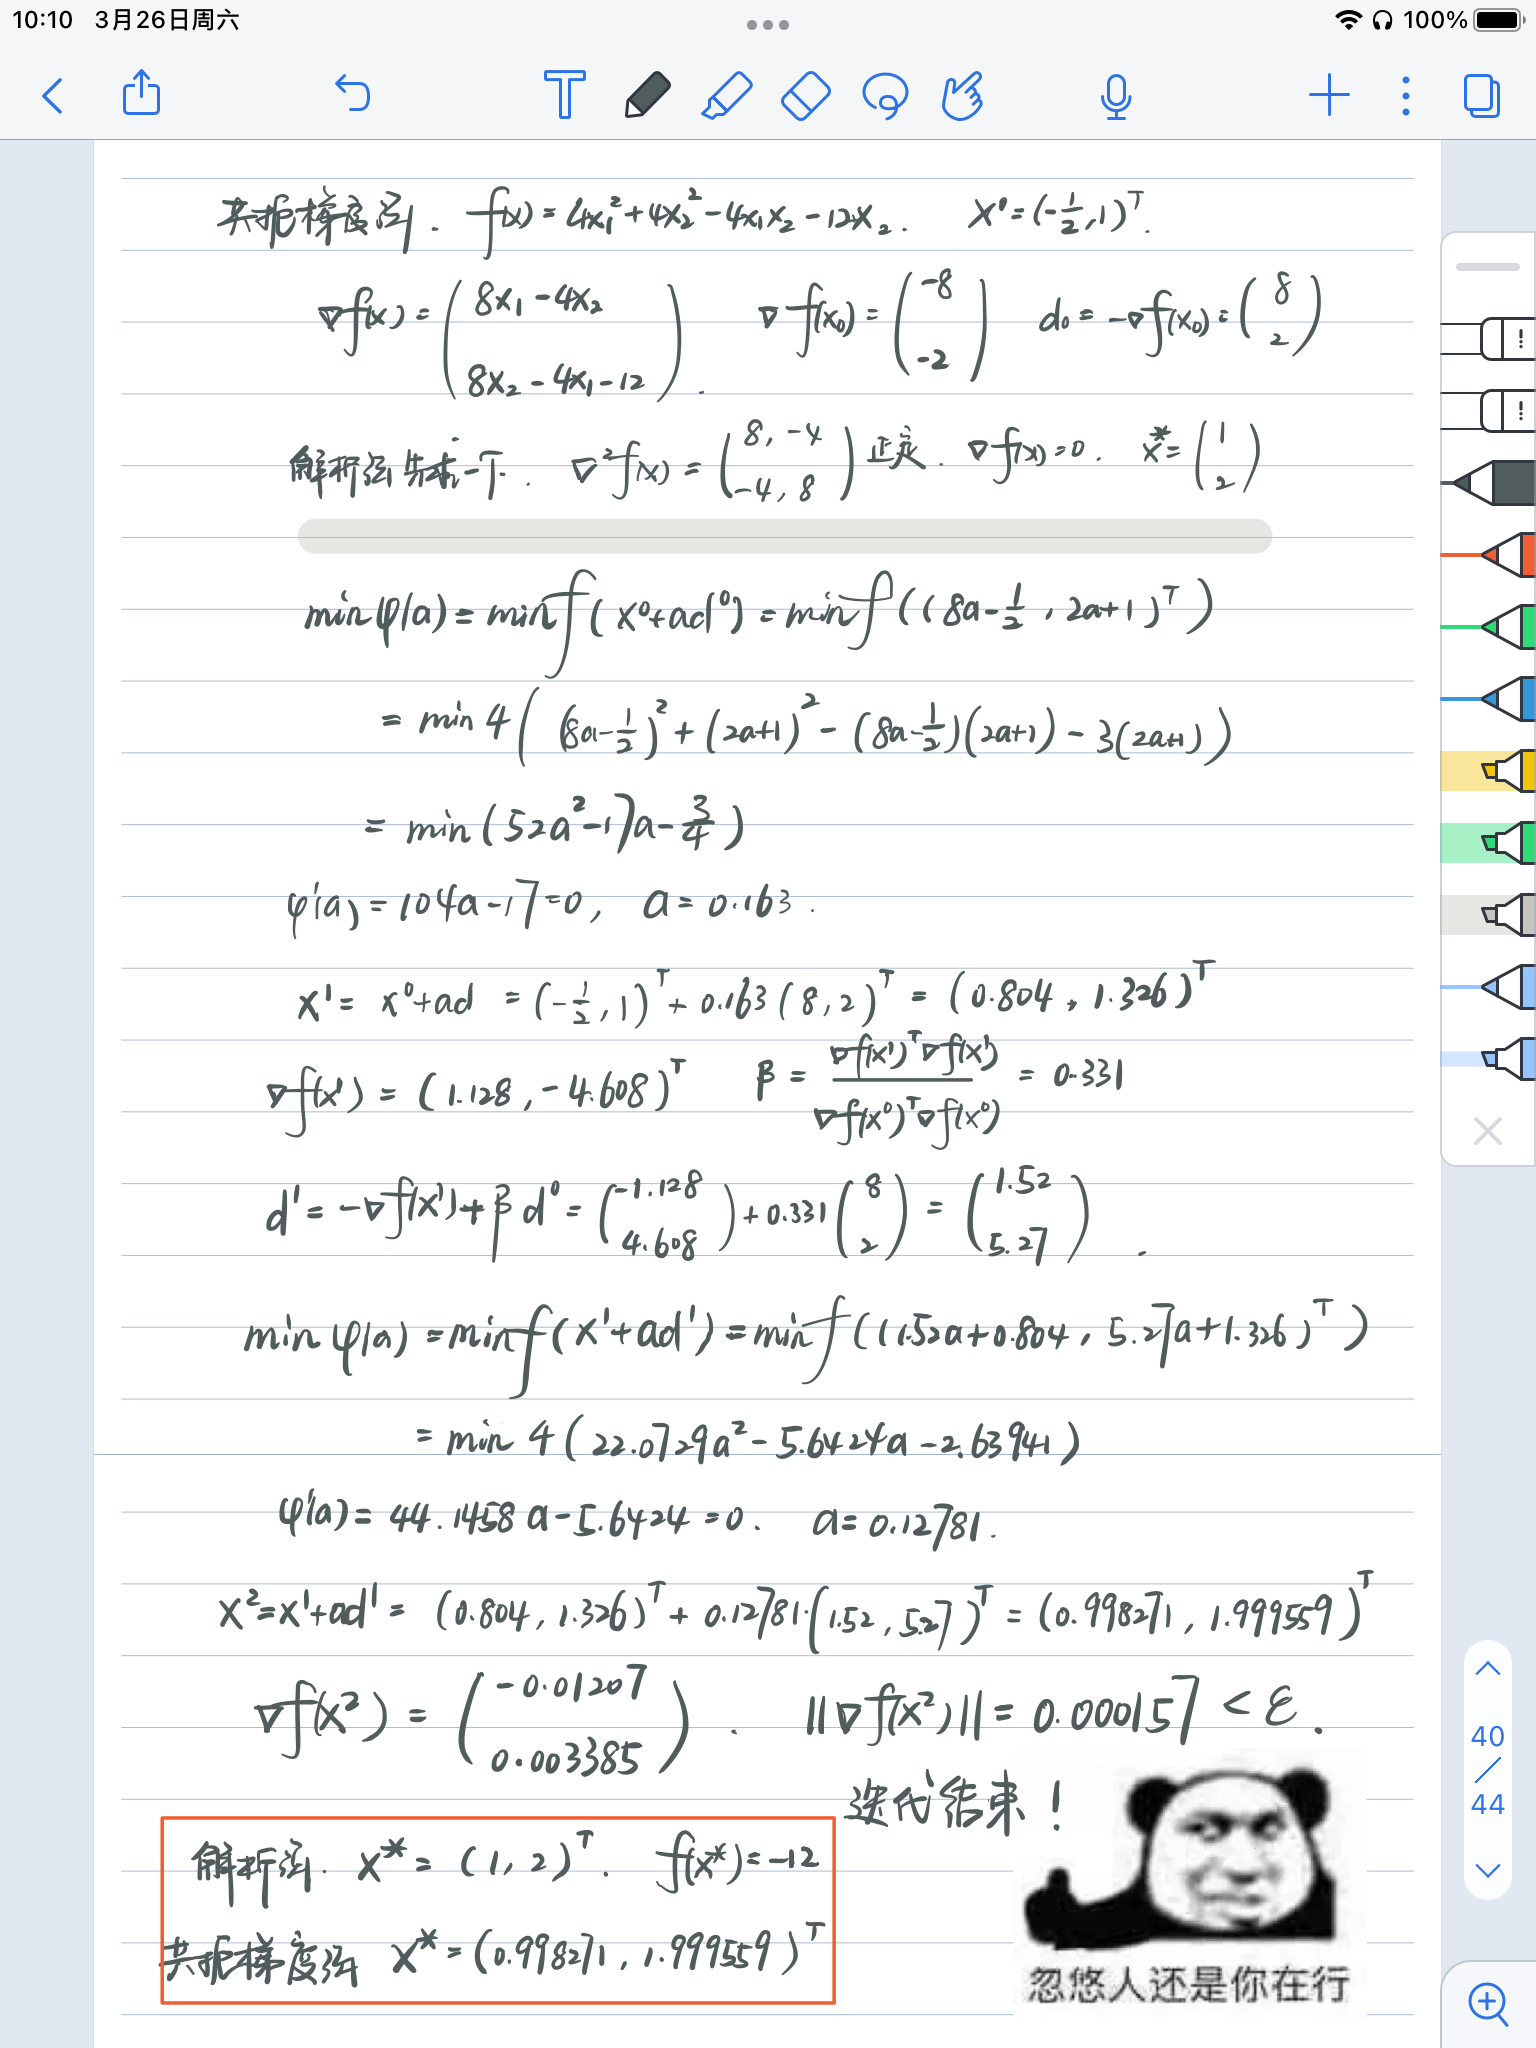 10:10 3月26日周六 100%
共轭梯度法. f(x) = 4x₁² + 4x₂² - 4x₁x₂ - 12x₂. X⁰ = (-1/2, 1)ᵀ.
∇f(x) = (8x₁ - 4x₂ ; 8x₂ - 4x₁ - 12). ∇f(x₀) = (-8 ; -2) d₀ = -∇f(x₀) = (8 ; 2)
解析法先求一下. ∇²f(x) = (8, -4 ; -4, 8) 正定. ∇f(x) = 0. x* = (1 ; 2)
min φ(a) = min f(x⁰+ad⁰) = min f((8a-1/2, 2a+1)ᵀ)
= min 4((8a-1/2)² + (2a+1)² - (8a-1/2)(2a+1) - 3(2a+1))
= min (52a² - 17a - 3/4)
φ'(a) = 104a - 17 = 0, a = 0.163.
X¹ = x⁰+ad = (-1/2, 1)ᵀ + 0.163(8, 2)ᵀ = (0.804, 1.326)ᵀ
∇f(x¹) = (1.128, -4.608)ᵀ β = ∇f(x¹)ᵀ∇f(x¹) / ∇f(x⁰)ᵀ∇f(x⁰) = 0.331
d¹ = -∇f(x¹) + β d⁰ = (-1.128 ; 4.608) + 0.331 (8 ; 2) = (1.52 ; 5.27).
min φ(a) = min f(x¹+ad¹) = min f((1.52a+0.804, 5.27a+1.326)ᵀ)
= min 4(22.0729a² - 5.6424a - 2.63941)
φ'(a) = 44.1458a - 5.6424 = 0. a = 0.12781.
X² = x¹+ad¹ = (0.804, 1.326)ᵀ + 0.12781·(1.52, 5.27)ᵀ = (0.998271, 1.999559)ᵀ
∇f(x²) = (-0.01207 ; 0.003385). ||∇f(x²)|| = 0.000157 < ε.
迭代结束!
解析法. X* = (1, 2)ᵀ. f(x*) = -12
共轭梯度法 X* = (0.998271, 1.999559)ᵀ
忽悠人还是你在行
40
/
44